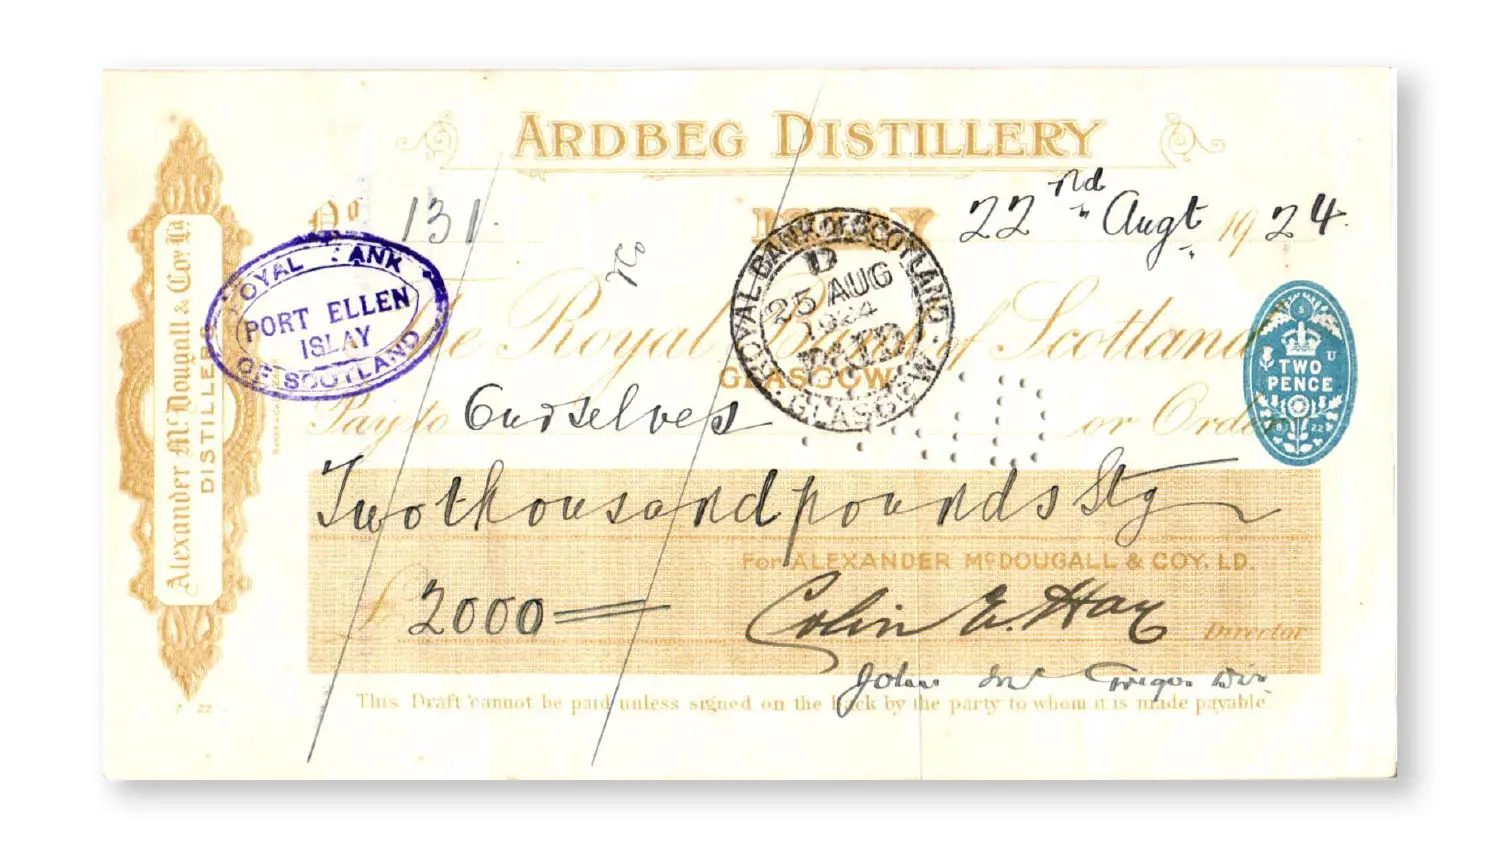 ARDBEG DISTILLERY
Nº 131.
ISLAY 22nd Augt. 1924.
ROYAL BANK OF SCOTLAND
PORT ELLEN
ISLAY
ROYAL BANK OF SCOTLAND
D
25 AUG
1924
PAID
GLASGOW
The Royal Bank of Scotland
GLASGOW
Pay to Ourselves or Order
TWO
PENCE
Two thousand pounds Stg
For ALEXANDER McDOUGALL & COY. LD.
£ 2000
Colin E. Hay Director
John McGregor Dir.
This Draft cannot be paid unless signed on the back by the party to whom it is made payable.
Alexander McDougall & Co: Ld
DISTILLERS